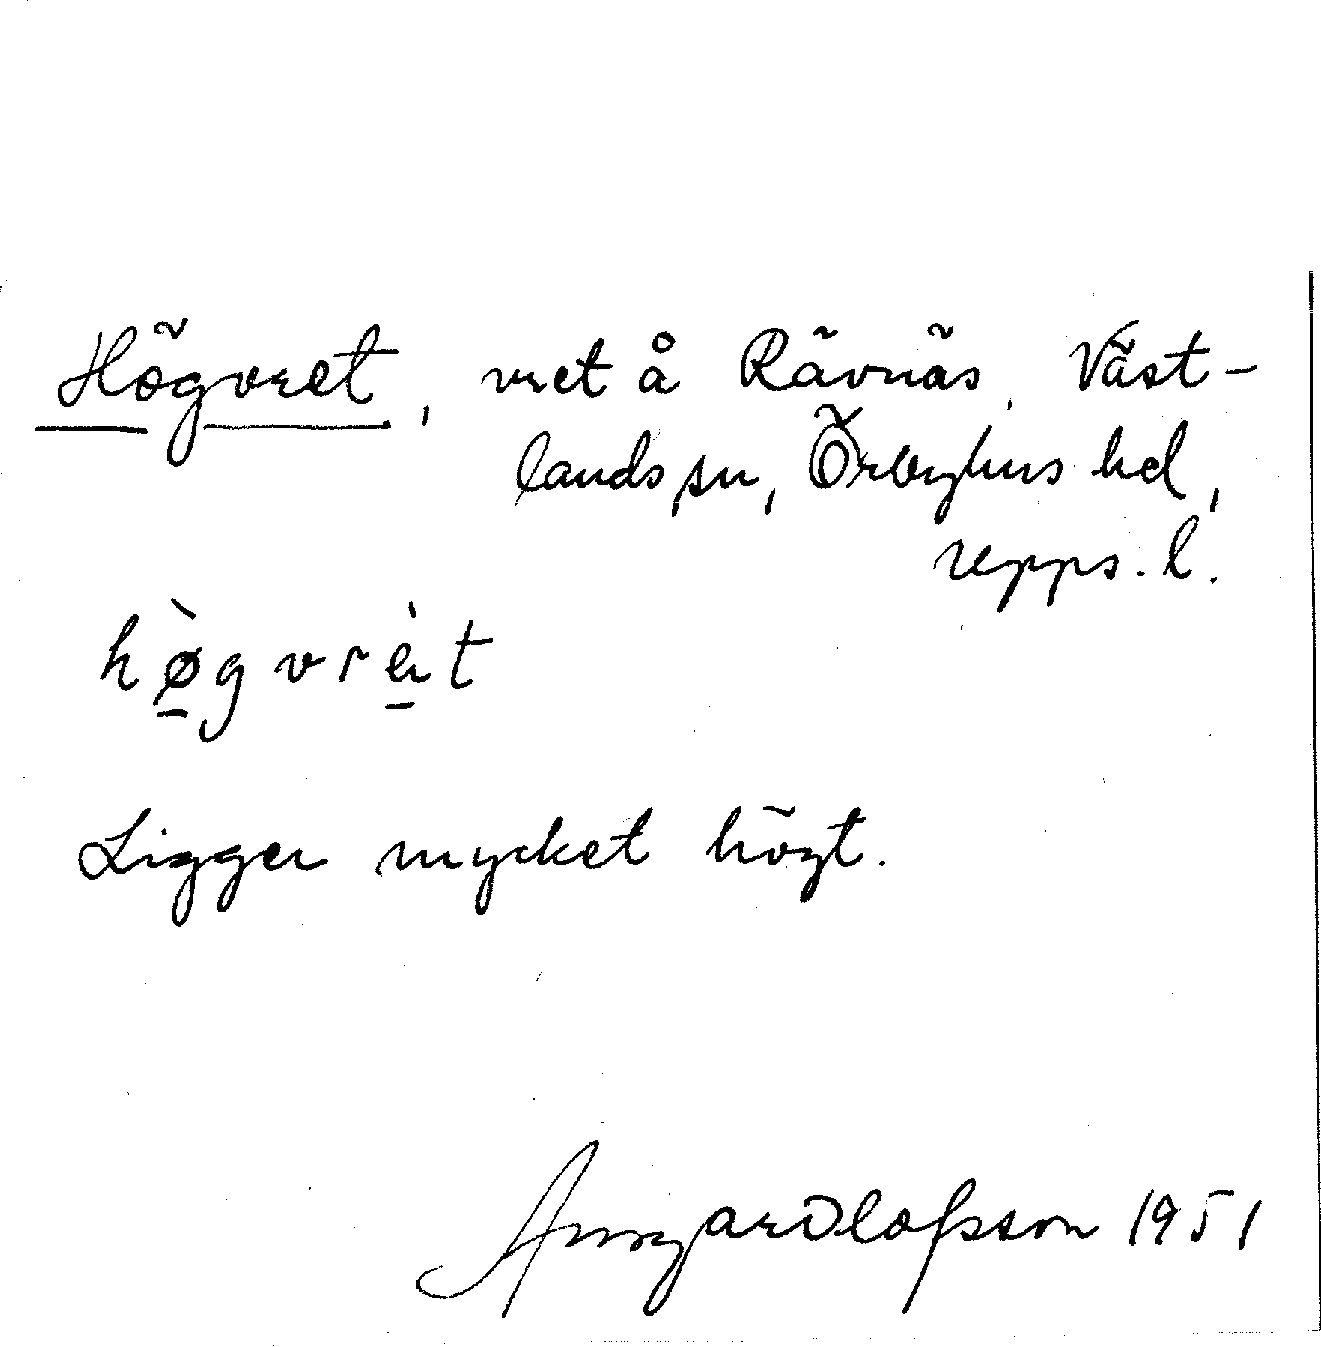 Högvret, vret å Rävnäs, Väst-
lands sn, Örbyhus hd,
Upps. l.
hø̀gvrèt
Ligger mycket högt.
Ansgar Olofsson 1951